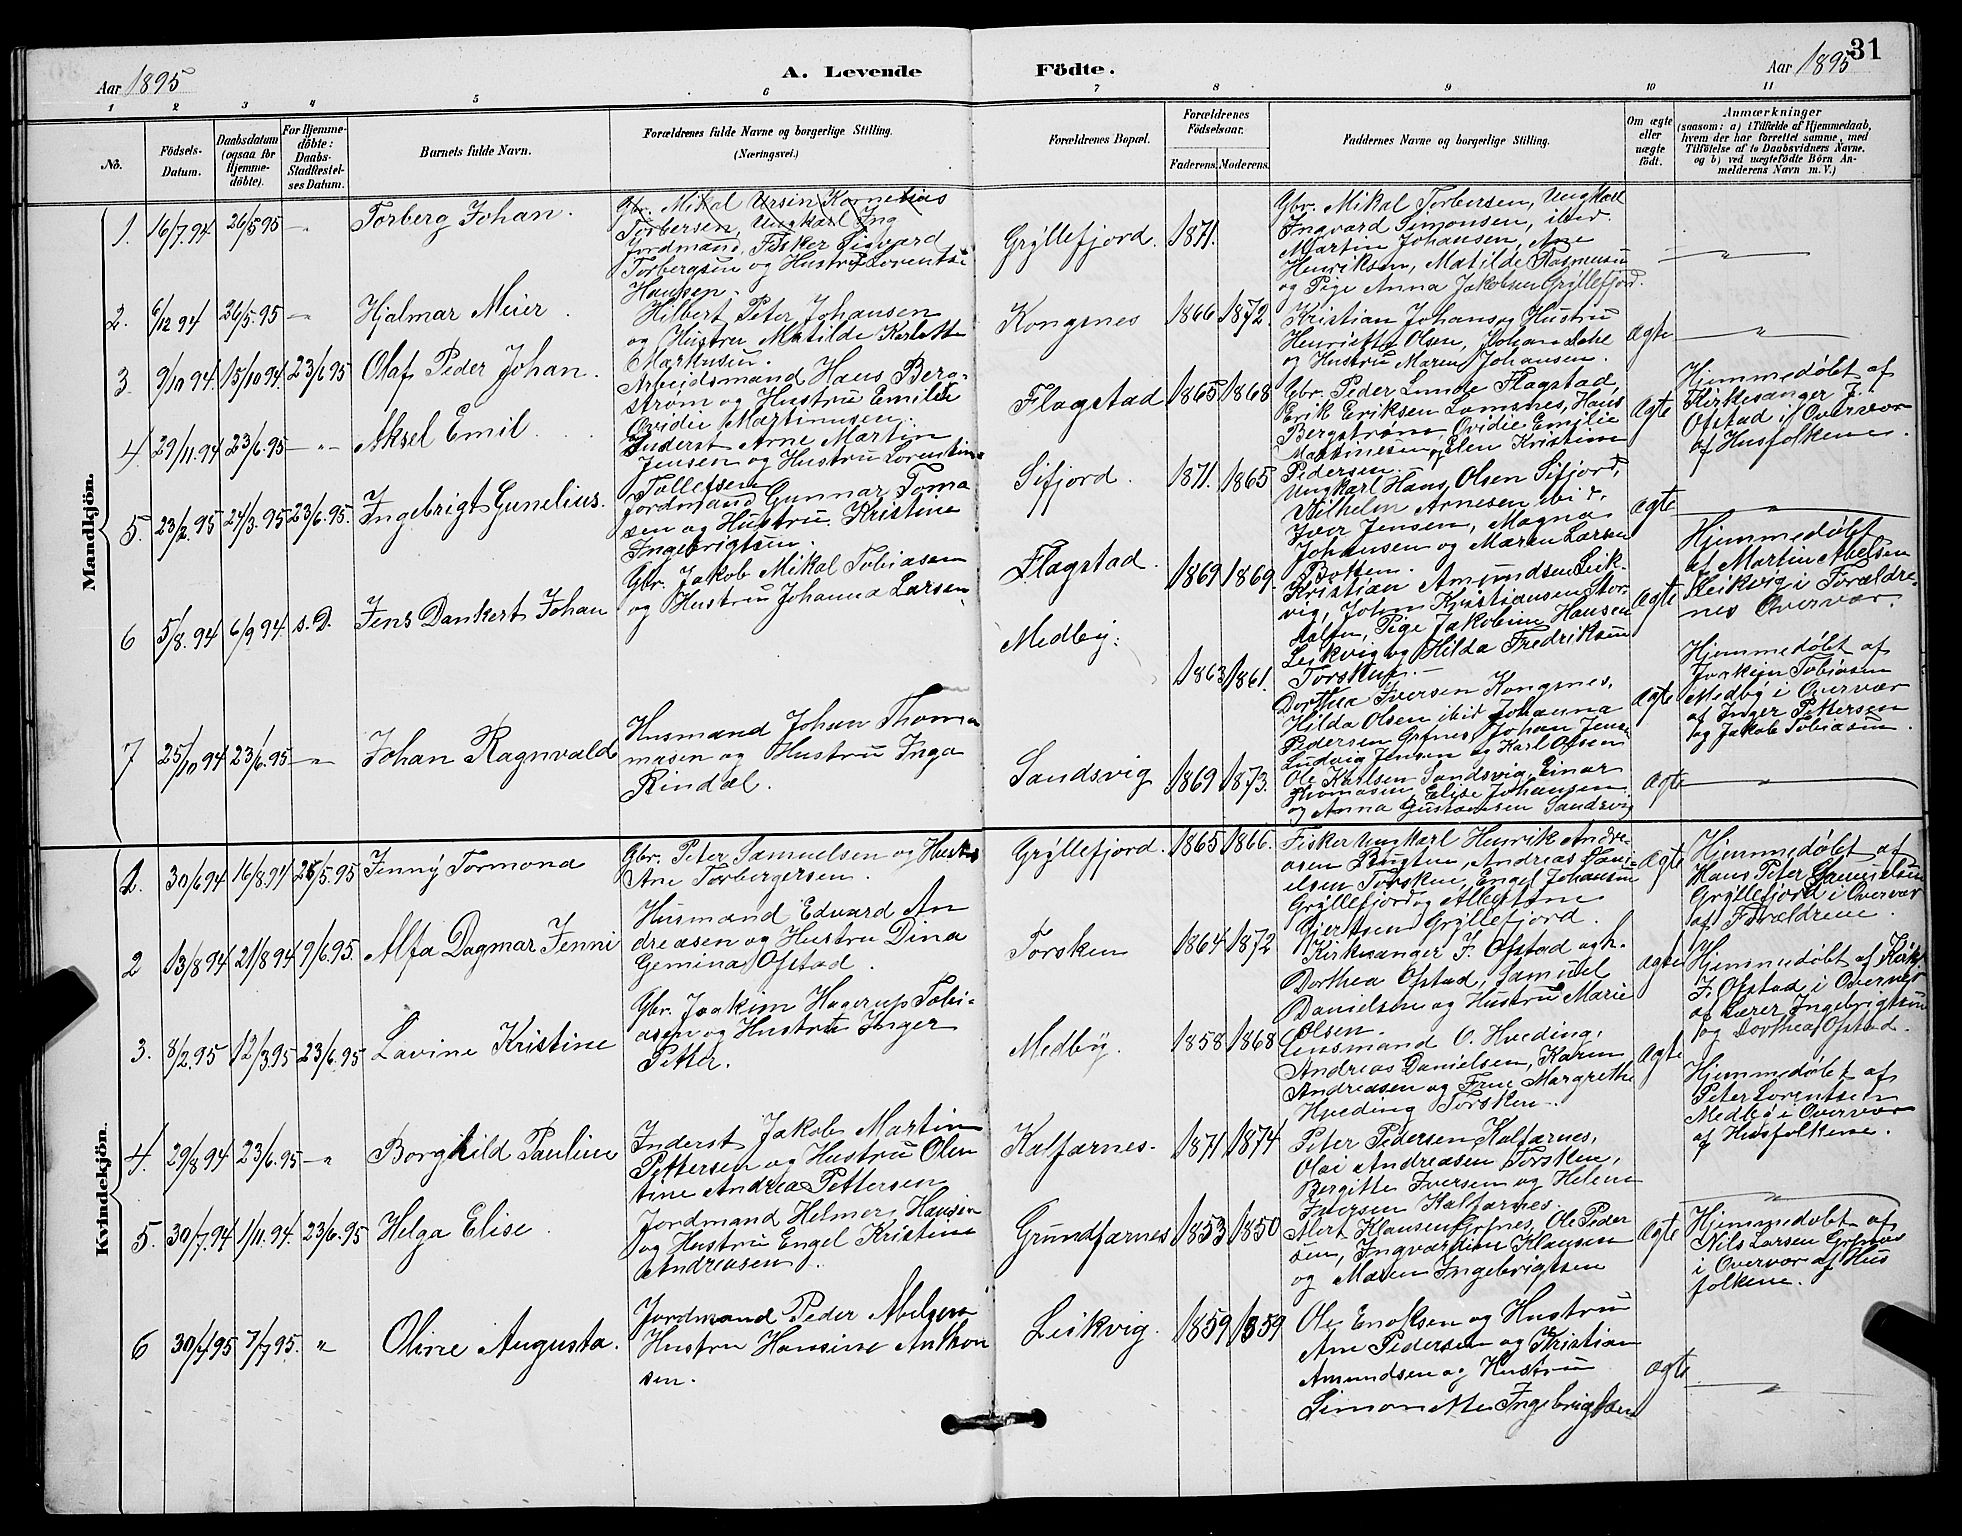 31
Aar 1895
A. Levende Födte.
Aar 1895
1 2 3 4 5 6 7 8 9 10 11
No.
Födsels-Datum.
Daabsdatum (ogsaa for Hjemme-döbte).
For Hjemme-döbte: Daabs-Stadfæstelses Datum.
Barnets fulde Navn.
Forældrenes fulde Navne og borgerlige Stilling.
(Næringsvei.)
Forældrenes Bopæl.
Forældrenes Födselsaar.
Faderens. Moderens.
Faddernes Navne og borgerlige Stilling.
Om ægte eller uægte födt.
Anmærkninger
(saasom: a) i Tilfælde af Hjemmedaab, hvem der har forrettet samme, med Tilföielse af to Daabsvidners Navne, og b) ved uægtefödte Börn Anmelderens Navn m. V.)
Mandkjön.
1. 16/7.94 26/5 95 -"- Torberg Johan.
Gbr. Mikal Ursin Kornelius
Torbersen, Ungkarl Ing
Jordmand, Fisker Sigvard
Torbergsen og Hustru Lorentse
Hansen.
Gryllefjord. 1871.
Gbr. Mikal Torbersen, Ungkarl
Ingvard Simonsen, ibid.
Martin Johansen, Ane
Henriksen, Matilde Rasmusen
og Pige Anna Jakobsen Gryllefjord.
"
2. 6/12 94 26/5.95 -"- Hjalmar Meier.
Hilbert Peter Johansen
og Hustru Matilde Karlotte
Markusen.
Kongsnes 1866 1872.
Kristian Johansen Hustru
Henriette Olsen, Johan
og Hustru Maren Johansen.
ægte "
3. 9/10 94. 15/10 94. 23/6 95 Olaf Peder Johan.
Arbeidsmand Hans Berg-
strøm og Hustru Emilie
Ovidie Martinusen.
Flagstad 1865 1868
Gbr. Peder Lunde Flagstad,
Erik Eriksen Lamsnes, Hans
Bergstrøm, Ovidie Emilie
Martinesen og Elen Kristine
Pedersen.
ægte
Hjemmedøbt af
Kirkesanger J.
Ofstad i Overvær
af Husfolkene.
4. 29/11.94 23/6.95 -"- Aksel Emil.
Inderst Arne Martin
Jensen og Hustru Lorentine
Tollefsen
Sifjord. 1871. 1865
Ungkarl Hans Olsen Sifjord,
Vilhelm Arnesen ibid,
Iver Jensen, Magna
Johansen og Maren Larsen
Botten.
ægte "
5. 23/2.95 24/3.95 23/6.95. Ingebrigt Gunelius.
Jordmand Gunnar Toma
sen og Hustru Kristine
Ingebrigtsen.
Flagstad. 1869 1869.
Kristian Amundsen Leik-
vig, John Kristiansen Stor-
, Pige Jakobine Hansen
Leikvig og Hilda Fredriksen
Torsken.
ægte
Hjemmedøbt
af Martin Abelsen
Leikvig i Forældre-
nes Overvær.
6 5/8.94 6/9 94. s.D. Jens Dankert Johan
Gbr. Jakob Mikal Tobiasen
og Hustru Johanna Larsen
Medby. 1863 1861.
Dorthea Iversen Kongsnes,
Hilda Olsen ibid Johanna
Pedersen Grfnes, Johan Jens
Ludvig Jensen og Karl Olsen
ægte
Hjemmedøbt af
Joakim Tobiasen
Medby i Overvær
af Inger Pettersen
og Jakob Tobiasen.
7 25/10 94 23/6.95 -"- Johan Ragnvald
Husmand Johan Thoma
masen og Hustru Inga
Rindal.
Sandsvig 1869 1873.
Ole Karlsen Sandsvig, Einar
Thomasen, Elise Johansen
og Anna Gustavsen Sandsvig
ægte "
Kvindekjön.
1. 30/6 94 16/8.94 26/5.95 Jenny Tormona
Gbr. Peter Samuelsen og Hustru
Ane Torbergersen.
Gryllefjord. 1865 1866.
Fisker Ungkarl Henrik Andre-
asen Bugten, Andreas Dani-
elsen Torsken, Engel Johansen
Gryllefjord og Albertine
Gjertsen Gryllefjord.
ægte
Hjemmedøbt af
Hans Peter
Gryllefjord i Overvær
af Forældrene.
2 13/8 94 21/8 94 9/6.95. Alfa Dagmar Jenni
Husmand Edvard An
dreasen og Hustru Dina
Gemina Ofstad.
Torsken 1864 1872
Kirkesanger J. Ofstad og h.
Dorthea Ofstad, Samuel
Danielsen og Hustru Marie
Olsen.
ægte
Hjemmedøbt af Kirks.
J. Ofstad i Overvær
af Lærer Ingebrigtsen
og Dorthea Ofstad.
3. 8/2.95 12/3.95 23/6.95 Lavine Kristine
Gbr. Joakim Hagerup Tobi-
asen og Hustru Inger
Petter.
Medby. 1858 1868
Lensmand O. Hveding,
Andreas Danielsen, Karen
Andreasen og Frue Margrethe
Hveding Torsken.
ægte
Hjemmedøbt af
Peter Lorentsen
Medby i Overvær
af Husfolkene.
4. 29/8 94 23/6.95 -"- Borghild Pauline
Inderst Jakob Martin
Pettersen og Hustru Olen
tine Andrea Pettersen
Kalfarnes. 1871 1874
Peter Pedersen Kalfarnes,
Olai Andreasen Torsken,
Bergitte Iversen og Helene
Iversen Kalfarnes.
"
5. 30/7.94 1/11.94. 23/6.95 Helga Elise.
Jordmand Helmer Hansen
og Hustru Engel Kristine
Andreasen.
Grundfarnes 1853 1850
Mert Klausen Grfnes, Ole Peder
sen, Ingvardine Klausen
og Maren Ingebrigtsen
ægte
Hjemmedøbt af
Nils Larsen Grfnes
i Overvær af Hus
folkene.
6 30/4 95 7/7 95. " Oline Augusta.
Jordmand Peder Abelsen
Hustru Hansine Anthon
sen.
Leikvig. 1859 1859
Ole Enoksen og Hustru
Ane Pedersen og Kristian
Amundsen og Hustru
Simon Ingebrigtsen
ægte "